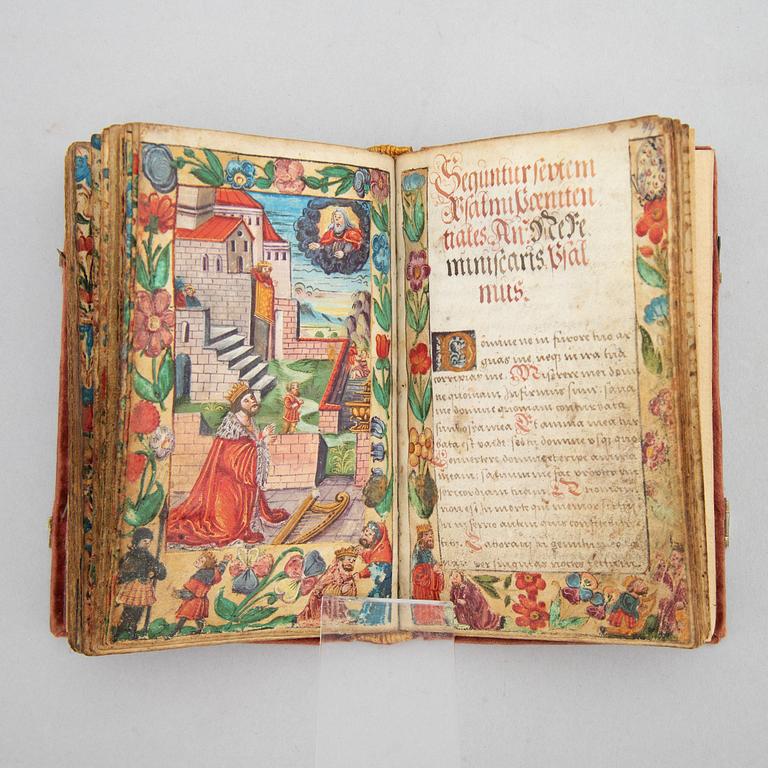 Sequntur septem
Psalmi Poeniten
tiales. An. Ne Re
miniscaris. Psal
mus.
Domine ne in furore tuo ar
guas me, neqz in ira tua
corripias me. Miserere mei domi
ne quoniam infirmus sum: sana
me domine quoniam conturbata
sunt ossa mea. Et anima mea tur
bata est valde: sed tu domine usqz quo
Convertere domine et eripe animam
meam: salvum me fac propter mi
sericordiam tuam. Quoniam
non est in morte qui memor sit tui:
in inferno autem quis confitebitur
tibi. Laboravi in gemitu meo la
per singulas noctes lectum